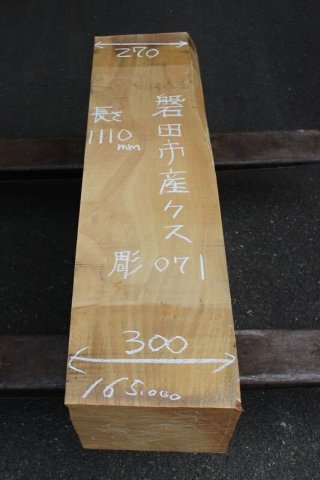 270
長さ
1110mm
磐田市産クス
彫 071
300
165,000